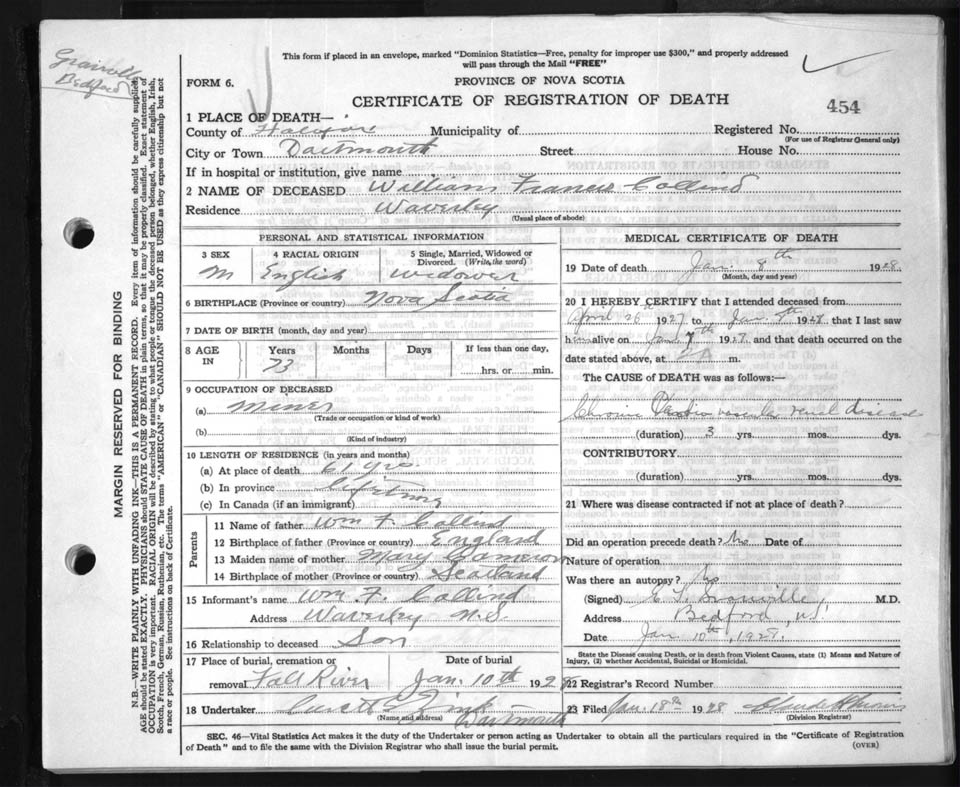 Granville
Bedford
This form if placed in an envelope, marked "Dominion Statistics—Free, penalty for improper use $300," and properly addressed
will pass through the Mail "FREE"
FORM 6.
PROVINCE OF NOVA SCOTIA
CERTIFICATE OF REGISTRATION OF DEATH
454
1 PLACE OF DEATH—
County of Halifax Municipality of Registered No.
(For use of Registrar General only)
City or Town Dartmouth Street House No.
If in hospital or institution, give name
2 NAME OF DECEASED William Francis Collins
Residence Waverley
(Usual place of abode)
PERSONAL AND STATISTICAL INFORMATION
3 SEX 4 RACIAL ORIGIN 5 Single, Married, Widowed or
Divorced. (Write the word)
M English Widower
6 BIRTHPLACE (Province or country) Nova Scotia
7 DATE OF BIRTH (month, day and year)
8 AGE IN Years Months Days If less than one day,
73 hrs. or min.
9 OCCUPATION OF DECEASED
(a) Miner
(Trade or occupation or kind of work)
(b)
(Kind of industry)
10 LENGTH OF RESIDENCE (in years and months)
(a) At place of death 61 yrs.
(b) In province Lifetime
(c) In Canada (if an immigrant)
Parents
11 Name of father Wm F. Collins
12 Birthplace of father (Province or country) England
13 Maiden name of mother Mary Cameron
14 Birthplace of mother (Province or country) Scotland
15 Informant's name Wm F. Collins
Address Waverley N.S.
16 Relationship to deceased Son
17 Place of burial, cremation or Date of burial
removal Fall River Jan. 10th 1928
18 Undertaker Zink
(Name and address) Dartmouth
MEDICAL CERTIFICATE OF DEATH
19 Date of death Jan. 8th 1928.
(Month, day and year)
20 I HEREBY CERTIFY that I attended deceased from
April 26th 1927 to Jan. 1928 that I last saw
him alive on Jan 7th 1928, and that death occurred on the
date stated above, at m.
The CAUSE OF DEATH was as follows:—
Chronic vascular renal disease
(duration) 3 yrs. mos. dys.
CONTRIBUTORY
(duration) yrs. mos. dys.
21 Where was disease contracted if not at place of death?
Did an operation precede death? No Date of
Nature of operation
Was there an autopsy? No
(Signed) Granville M.D.
Address Bedford, NS
Date Jan 10th, 1928.
State the Disease causing Death, or in death from Violent Causes, state (1) Means and Nature of
Injury, (2) whether Accidental, Suicidal or Homicidal.
22 Registrar's Record Number
23 Filed Jan. 18th 1928
(Division Registrar)
SEC. 46—Vital Statistics Act makes it the duty of the Undertaker or person acting as Undertaker to obtain all the particulars required in the "Certificate of Registration
of Death" and to file the same with the Division Registrar who shall issue the burial permit.
(OVER)
MARGIN RESERVED FOR BINDING
N.B.—WRITE PLAINLY WITH UNFADING INK—THIS IS A PERMANENT RECORD. Every item of information should be carefully supplied.
AGE should be stated EXACTLY. PHYSICIANS should STATE CAUSE OF DEATH in plain terms, so that it may be properly classified. Exact statement of
OCCUPATION is very important. RACIAL ORIGIN will be described by stating to what people or tongue the deceased person belonged, whether English, Irish,
Scotch, French, German, Russian, Ruthenian, etc. The terms "AMERICAN" or "CANADIAN" SHOULD NOT BE USED as they express citizenship but not
a race or people. See instructions on back of Certificate.